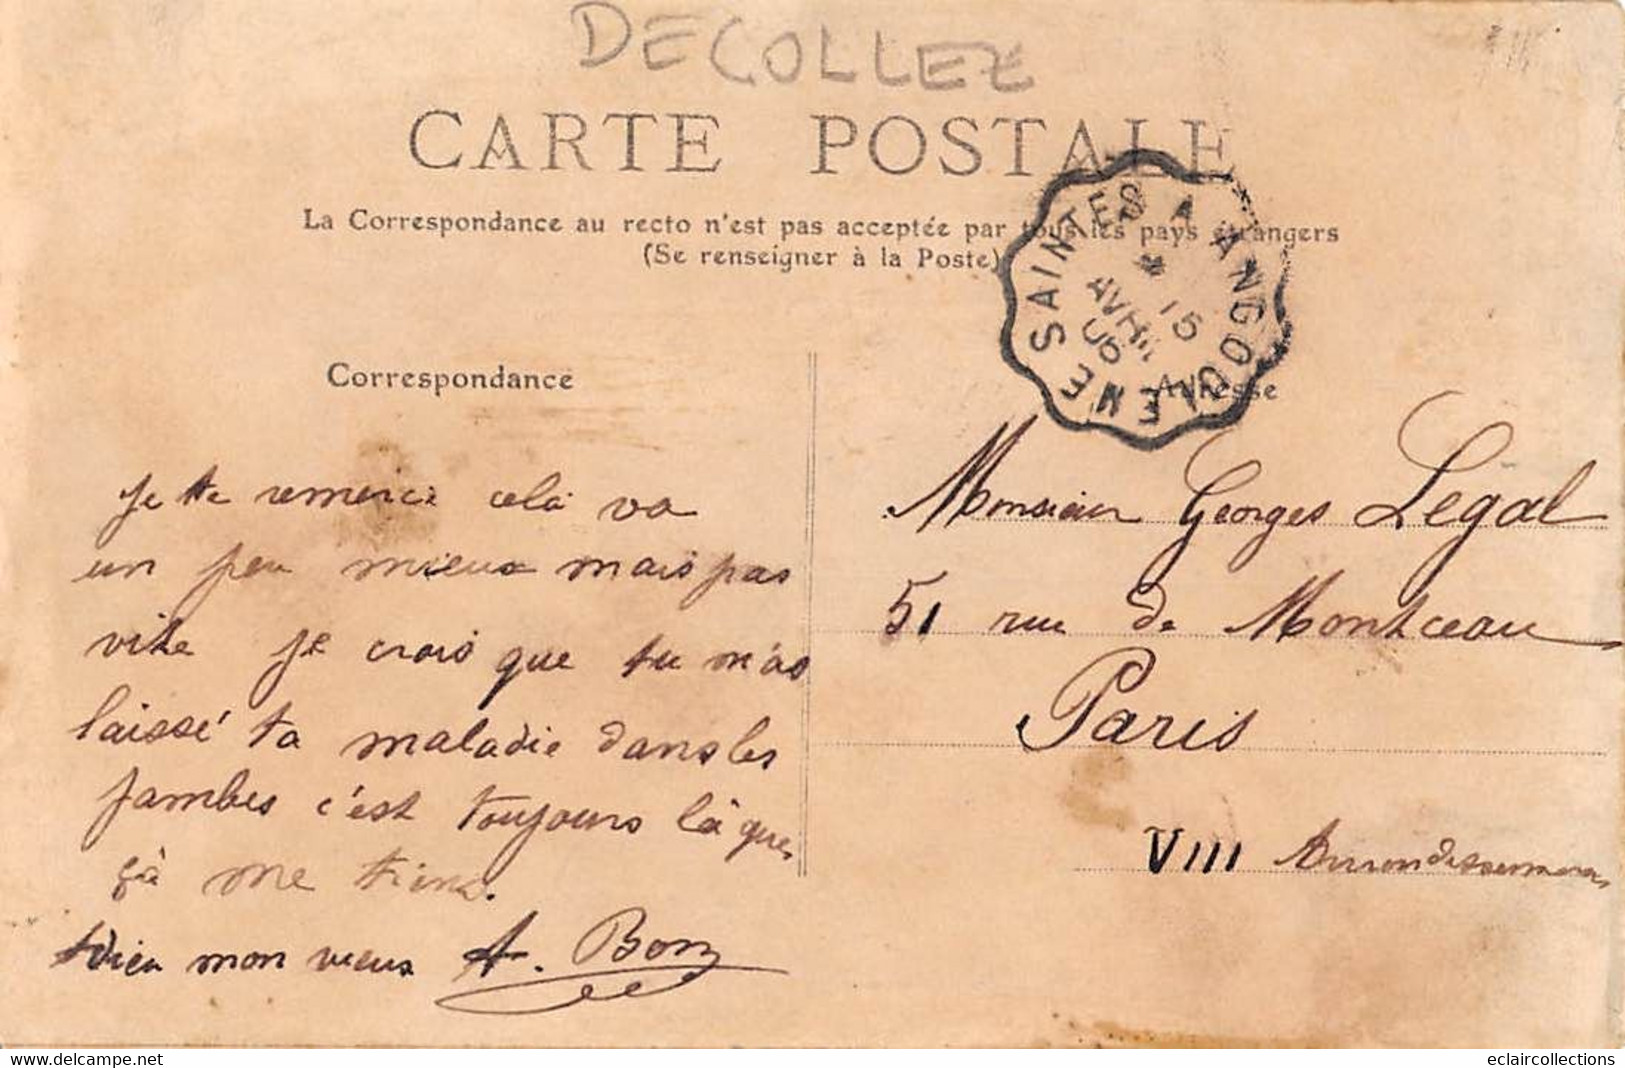 DECOLLEZ
CARTE POSTALE
La Correspondance au recto n'est pas acceptée par tous les pays étrangers
(Se renseigner à la Poste)
SAINTES A ANGOULEME
15
AVRIL
06
Correspondance
je te remercie cela va
un peu mieux mais pas
vite je crois que tu m'as
laissé ta maladie dans les
jambes c'est toujours là que
çà me tiens.
Adieu mon vieux A. Bon
Adresse
Monsieur Georges Legal
51 rue de Montceau
Paris
VIII Arrondissement
eclaircollections